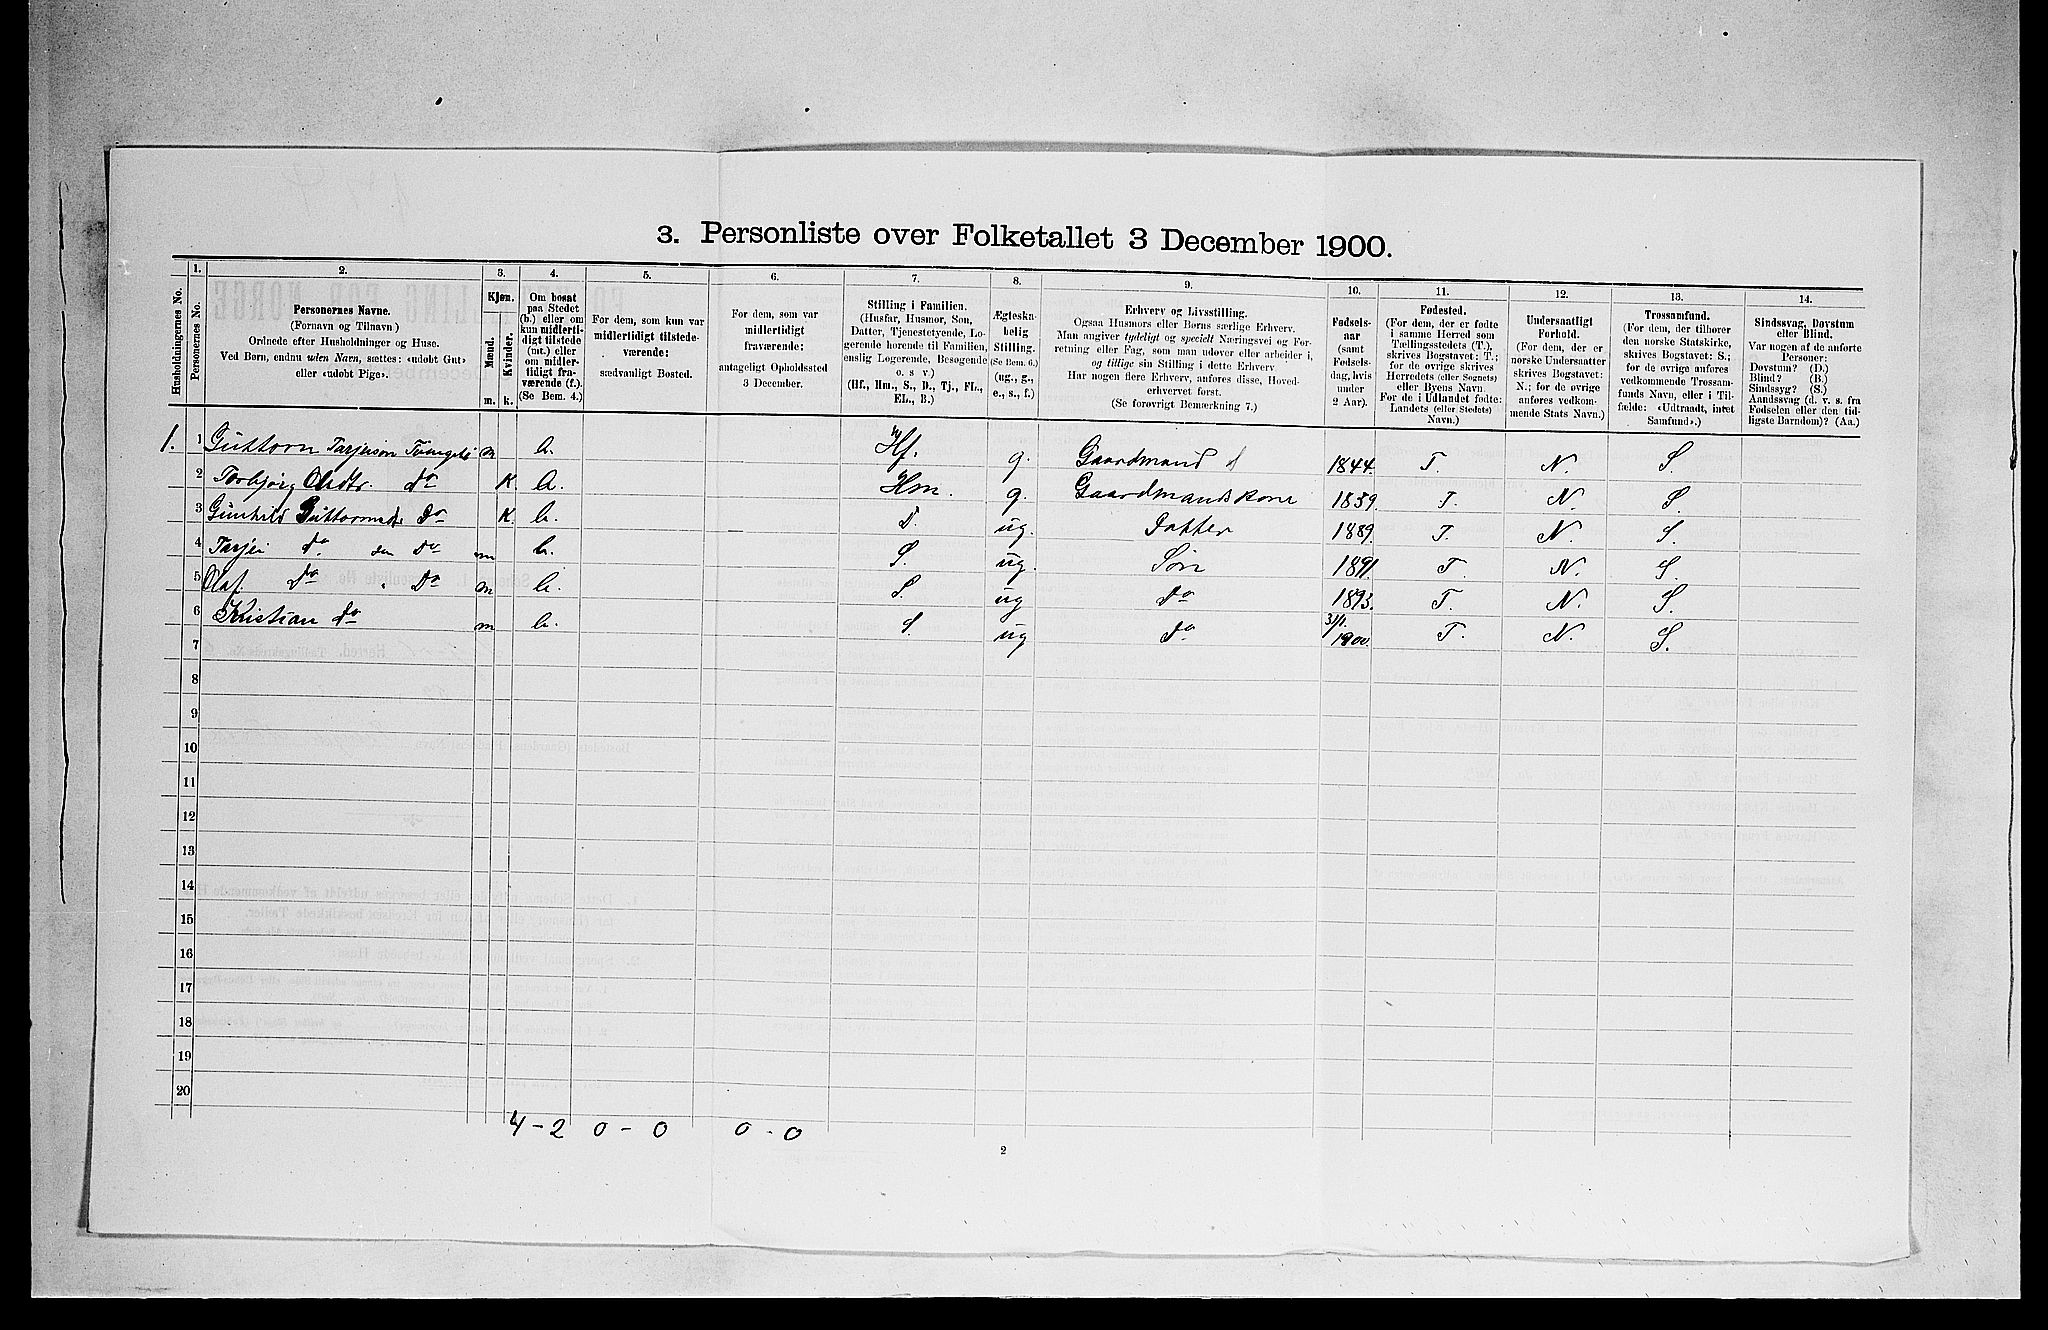 3. Personliste over Folketallet 3 December 1900.
Husholdningernes No.
1.
Personernes No.
2.
Personernes Navne.
(Fornavn og Tilnavn)
Ordnede efter Husholdninger og Huse.
Ved Børn, endnu uden Navn, sættes: «udøbt Gut»
eller «udøbt Pige».
3.
Kjøn.
Mænd.
Kvinder.
m. k.
4.
Om bosat
paa Stedet
(b.) eller om
kun midlerti-
digt tilstede
(mt.) eller
om midler-
tidigt fra-
værende (f.).
(Se Bem. 4.)
5.
For dem, som kun var
midlertidigt tilstede-
værende:
sædvanligt Bosted.
6.
For dem, som var
midlertidigt
fraværende:
antageligt Opholdssted
3 December.
7.
Stilling i Familien.
(Husfar, Husmor, Søn,
Datter, Tjenestetyende, Lo-
gerende hørende til Familien,
enslig Logerende, Besøgende
o. s. v.)
(Hf., Hm., S., D., Tj., FL.,
EL., B.)
8.
Ægteska-
belig
Stilling.
(Se Bem. 6.)
(ug., g.,
e., s., f.)
9.
Erhverv og Livsstilling.
Ogsaa Husmors eller Børns særlige Erhverv.
Man angiver tydeligt og specielt Næringsvei og For-
retning eller Fag, som man udøver eller arbeider i,
og tillige sin Stilling i dette Erhverv.
Har nogen flere Erhverv, anføres disse, Hoved-
erhvervet først.
(Se forøvrigt Bemærkning 7.)
10.
Fødsels-
aar
(samt
Fødsels-
dag, hvis
under
2 Aar).
11.
Fødested.
(For dem, der er fødte
i samme Herred som
Tællingsstedets (T.),
skrives Bogstavet: T.;
for de øvrige skrives
Herredets (eller Sognets)
eller Byens Navn.
For de i Udlandet fødte:
Landets (eller Stedets)
Navn.)
12.
Undersaatligt
Forhold.
(For dem, der er
norske Undersaatter
skrives Bogstavet:
N.; for de øvrige
anføres vedkom-
mende Stats Navn.)
13.
Trossamfund.
(For dem, der tilhører
den norske Statskirke,
skrives Bogstavet: S.;
for de øvrige anføres
vedkommende Trossam-
funds Navn, eller i Til-
fælde: «Udtraadt, intet
Samfund».)
14.
Sindssvag, Døvstum
eller Blind.
Var nogen af de anførte
Personer:
Døvstum? (D.)
Blind? (B.)
Sindssyg? (S.)
Aandssvag (d. v. s. fra
Fødselen eller den tid-
ligste Barndom)? (Aa.)
1. 1 Guttorm Tarjeisøn m b. Hf. g. Gaardmand 1844. T. N. S.
2 Torbjørg Olsdtr. do K. b. Hm. g. Gaardmandskone 1859. T. N. S.
3 Gunhild Guttormsdr do K. b. D. ug. Datter 1889. T. N. S.
4 Tarjei do søn do m b. S. ug. Søn 1891. T. N. S.
5 Olaf do " do m b. S. ug do 1893. T. N. S.
6 Kristian do m b. S. ug do 3/1. 1900. T. N. S.
7
8
9
10
11
12
13
14
15
16
17
18
19
20
4 - 2 0 - 0 0 - 0
2